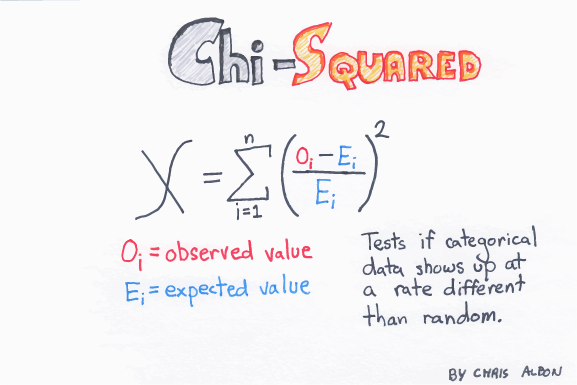 Chi-Squared
χ = ∑ⁿᵢ₌₁ ((Oᵢ – Eᵢ) / Eᵢ)²
Oᵢ = observed value
Eᵢ = expected value
Tests if categorical
data shows up at
a rate different
than random.
BY CHRIS ALBON